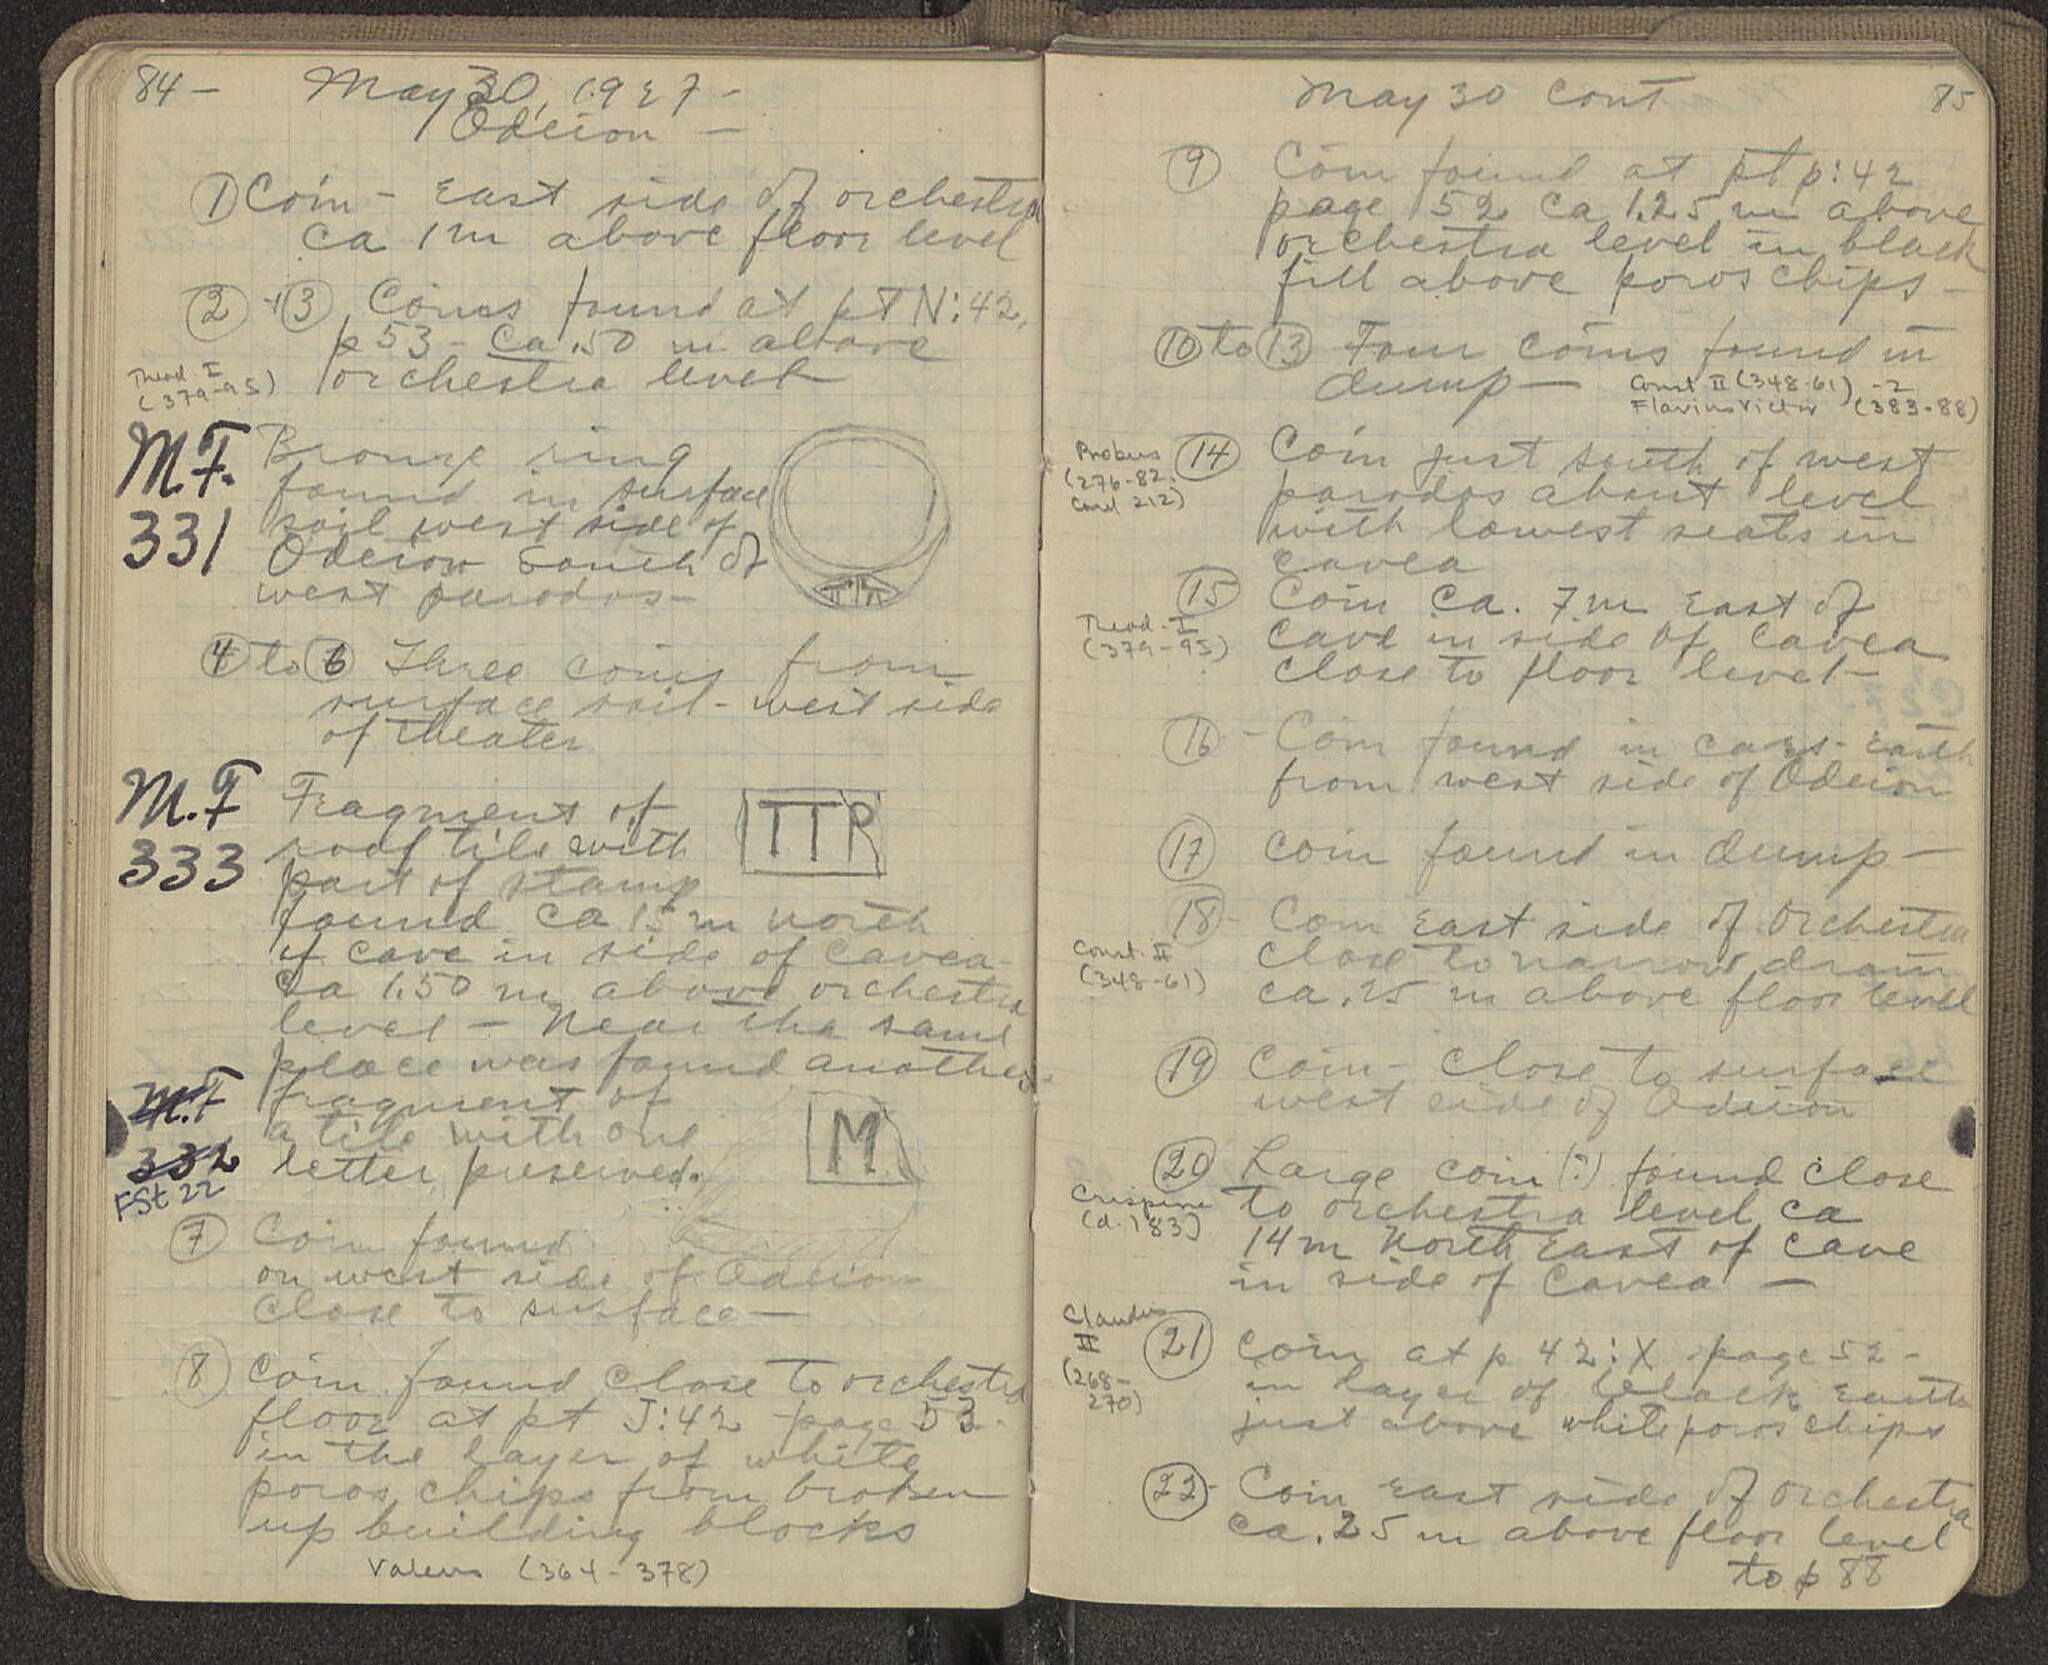 84 –
May 30, 1927 –
Odeion –
① Coin – East side of orchestra
ca 1 m above floor level
② + ③ Coins found at pt N:42,
p 53 – ca .50 m above
orchestra level
Theod. I
(379-95)
M.F.
331
Bronze ring
found in surface
soil west side of
Odeion South of
west parodos –
④ to ⑥ Three coins from
surface soil – west side
of theater
M.F
333
Fragment of
roof tile with
part of stamp
TTR
found ca 15 m north
of cave in side of cavea
Ca 1.50 m above orchestra
level – Near the same
place was found another
M.F
332
FSt 22
fragment of
a tile with one
letter preserved.
M
⑦ Coin found
on west side of Odeion
close to surface –
⑧ Coin found close to orchestra
floor at pt J:42 page 53.
in the layer of white
poros chips from broken
up building blocks
Valens (364-378)
May 30 cont
85
⑨ Coin found at pt p:42
page 52 ca 1.25 m above
orchestra level in black
fill above poros chips –
⑩ to ⑬ Four coins found in
dump –
Const. II (348-61) -2
Flavius Victor (383-88)
Probus
(276-82.
Cond 212)
⑭ Coin just south of west
parodos about level
with lowest seats in
cavea
⑮ Coin ca. 7 m East of
cave in side of cavea
close to floor level –
Theod. I
(379-95)
⑯ – Coin found in cars – earth
from west side of Odeion
⑰ Coin found in dump –
⑱ – Coin East side of Orchestra
close to narrow drain
ca .25 m above floor level
Const. II
(348-61)
⑲ Coin – close to surface
west side of Odeion
⑳ Large coin (?) found close
to orchestra level ca
14 m North East of cave
in side of cavea –
Crispina
(d. 183)
Claudius
II
(268-
270)
㉑ Coin at p 42:X page 52 –
in layer of black earth
just above white poros chips
㉒ – Coin East side of Orchestra
ca .25 m above floor level
to p 88